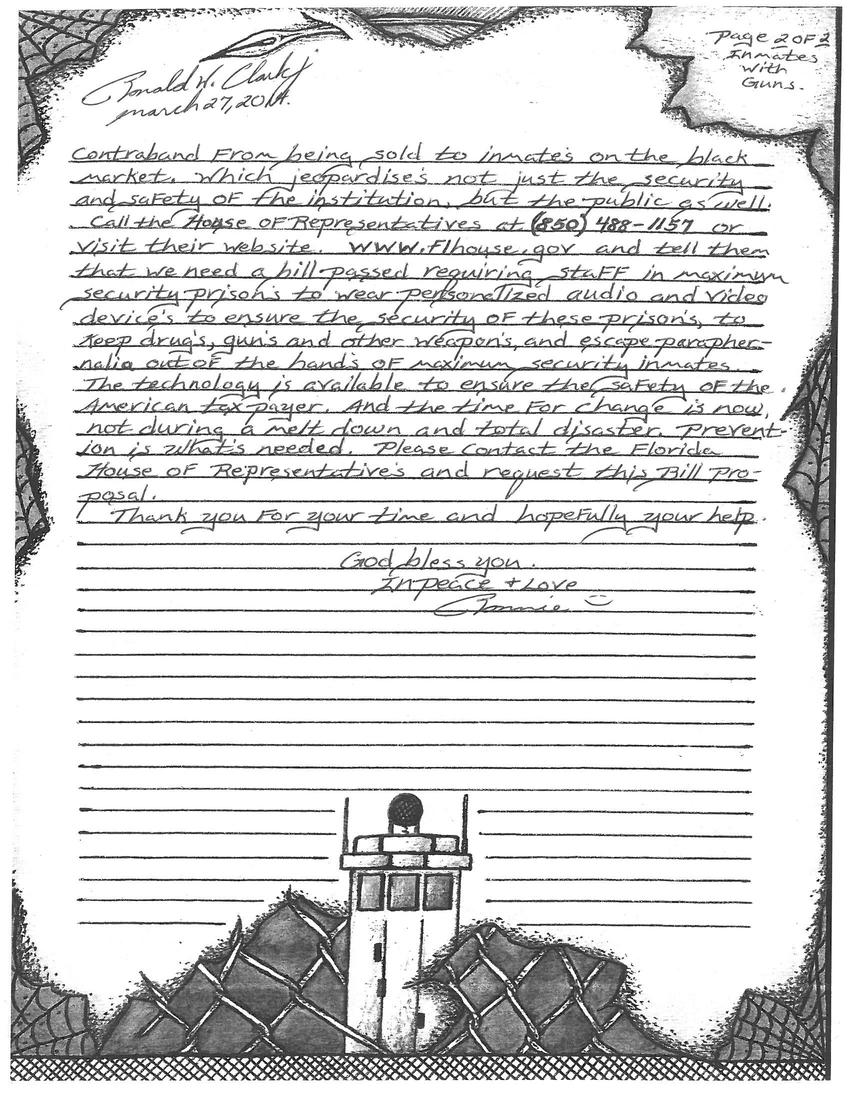 Ronald W. Clark Jr
march 27, 2014.
Page 2 OF 2
Inmates
With
Guns.
Contraband From being sold to inmate's on the black
market. Which jeopardise's not just the security
and safety OF the institution, but the public as well.
Call the House OF Representatives at (850) 488-1157 or
visit their website. WWW.Flhouse.gov and tell them
that we need a bill passed requiring staFF in maximum
security prison's to wear personalized audio and video
device's to ensure the security OF these prison's, to
Keep drug's, gun's and other weapon's, and escape parapher-
nalia out of the hand's OF maximum security inmates.
The technology is available to ensure the saFety OF the
American tax payer. And the time For change is now,
not during a melt down and total disaster. Prevent-
ion is what's needed. Please Contact the Florida
House OF Representative's and request this Bill Pro-
posal.
Thank you For your time and hopeFully your help.
God bless you.
In peace + Love
Ronnie